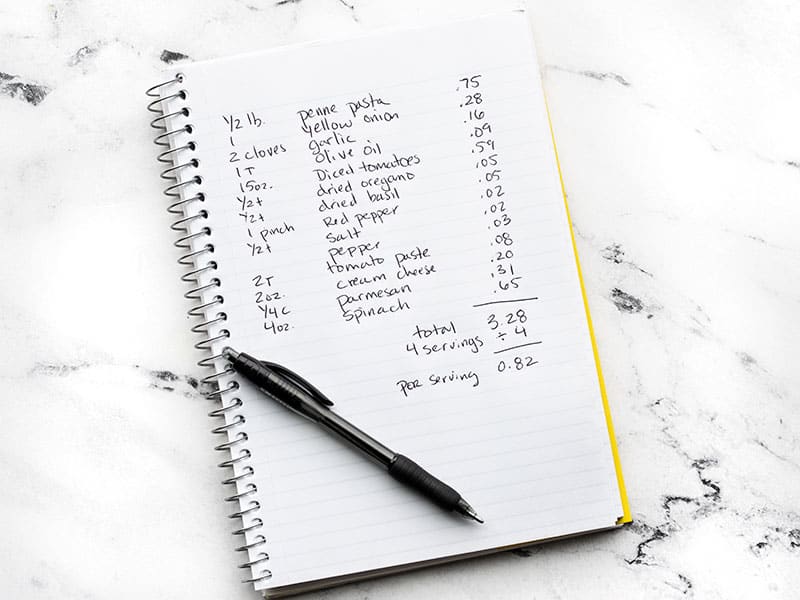 ½ lb. penne pasta .75
1 yellow onion .28
2 cloves garlic .16
1T olive oil .09
15oz. Diced tomatoes .59
½t dried oregano .05
½t dried basil .05
1 pinch Red pepper .02
½t salt .02
pepper .03
2T tomato paste .08
2oz. cream cheese .20
¼ c parmesan .31
4oz. spinach .65
total 3.28
4 servings ÷ 4
per serving 0.82